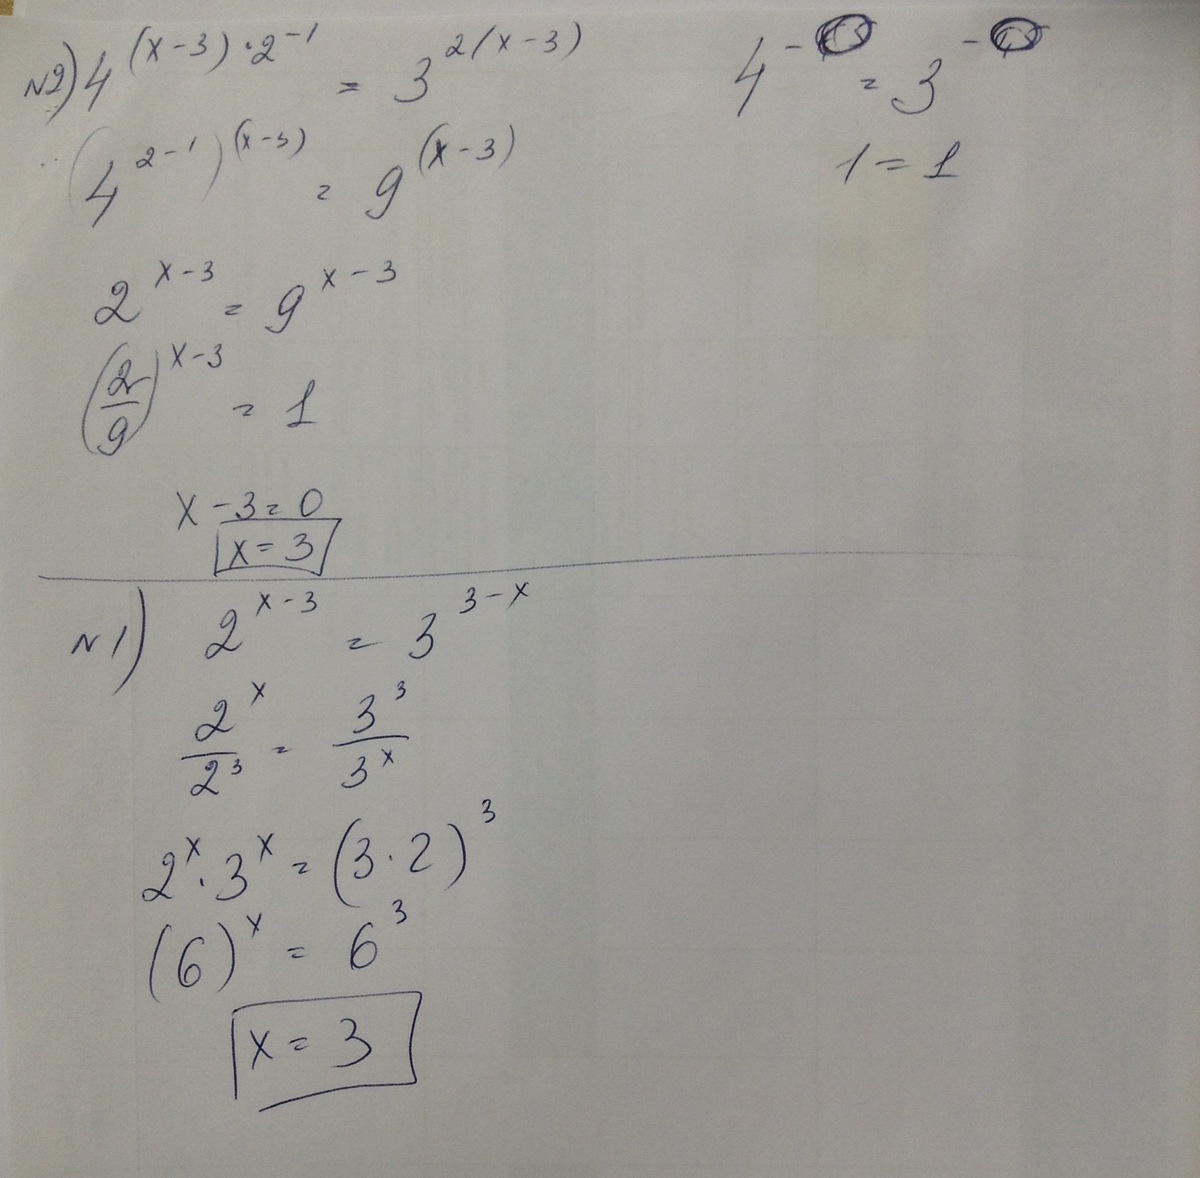 N2) 4^{(x-3)·2^{-1}} = 3^{2(x-3)}
(4^{2^{-1}})^{(x-3)} = 9^{(x-3)}
2^{x-3} = 9^{x-3}
(2/9)^{x-3} = 1
x-3=0
x=3
4^- = 3^-
1=1
N1) 2^{x-3} = 3^{3-x}
2^x/2^3 = 3^3/3^x
2^x·3^x = (3·2)^3
(6)^x = 6^3
x=3